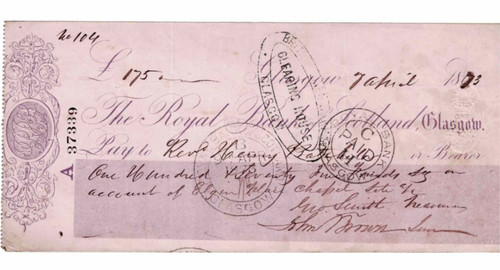 No 104
£ 175
Glasgow 7 April 1873
A 37339
The Royal Bank of Scotland, Glasgow.
Pay to Revd Henry or Bearer
One Hundred & Seventy five Pounds Stg on
account of Elgin Place Chapel Site &c
Geo Smith Treasurer
John Brown
CLEARING HOUSE
GLASGOW
PAID
GLASGOW